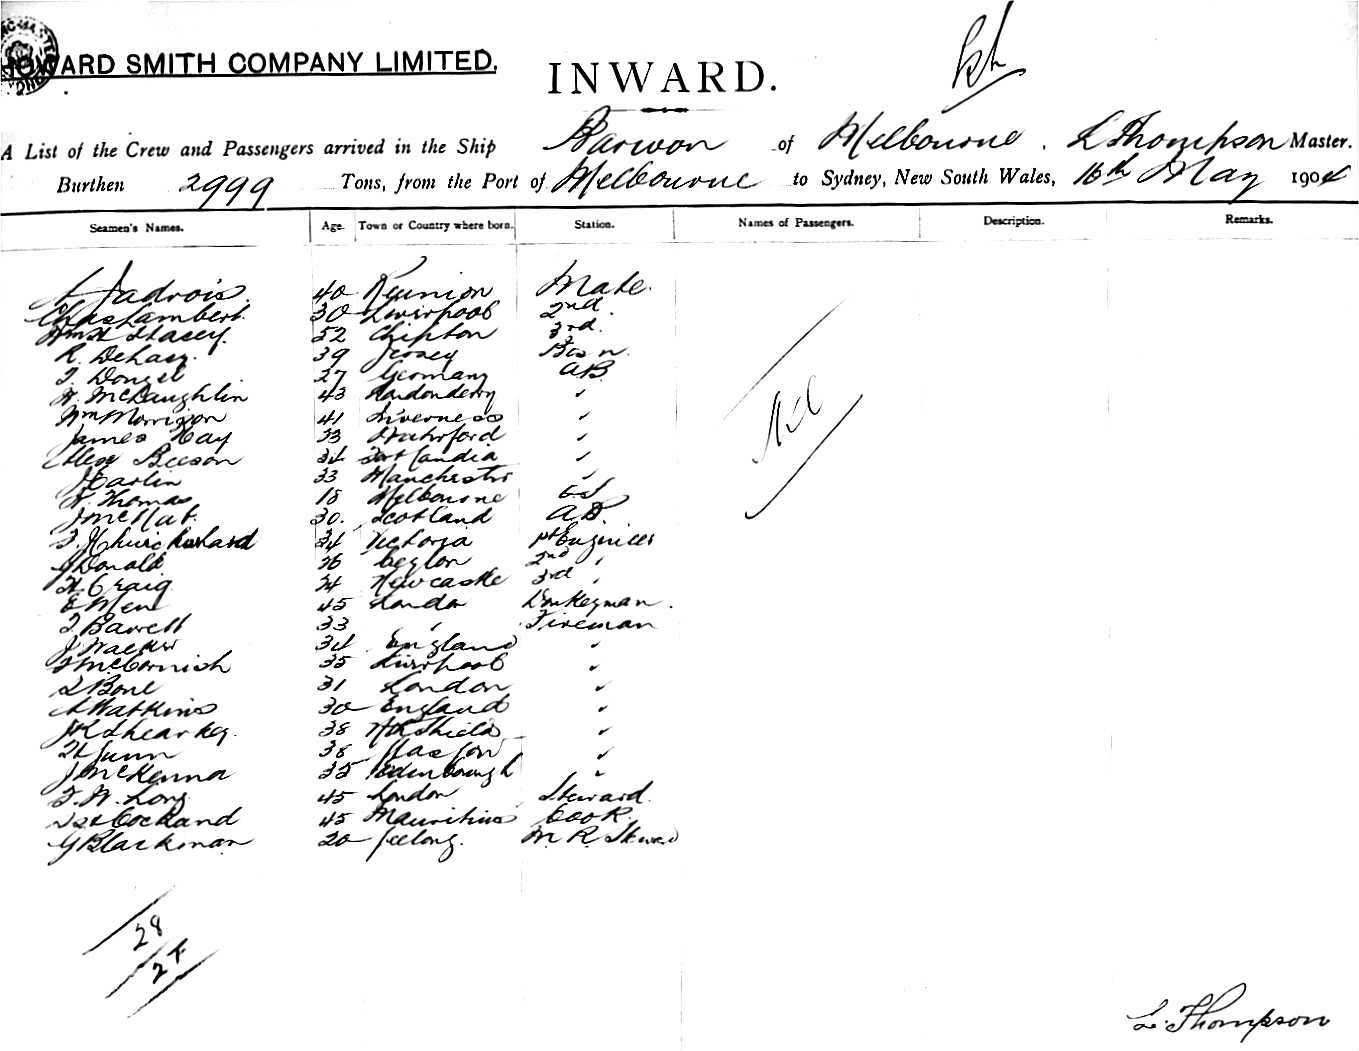 HOWARD SMITH COMPANY LIMITED.
INWARD.
A List of the Crew and Passengers arrived in the Ship Barwon of Melbourne. L Thompson Master.
Burthen 2999 Tons, from the Port of Melbourne to Sydney, New South Wales, 16th May 1904
Seamen's Names. Age. Town or Country where born. Station. Names of Passengers. Description. Remarks.
40 Reunion Mate.
Chas Lambert 30 Liverpool 2nd
Wm H Stacey 52 3rd.
R. 39 Jersey Bosn.
27 Germany AB
McLaughlin 43 Londonderry "
Wm Morrison 41 Inverness "
James Hay 33 "
Alex Beeson 34 "
33 Manchester "
W. Thomas 18 Melbourne
J McNab. 30. Scotland AB.
34 Victoria 1st Engineer
J Donald 26 Ceylon 2nd "
H Craig 24 Newcastle 3rd "
45 London Donkeyman.
33 " Fireman
J Walker 34 England "
35 Liverpool "
Bone 31 London "
A Watkins 30 England "
38 Nth Shields "
Gunn 38 Glasgow "
J McKenna 35 Edinborough "
W. Long 45 London Steward.
45 Mauritius Cook.
G Blackman 20 Geelong. M. R. Steward
Nil
28
27
L. Thompson